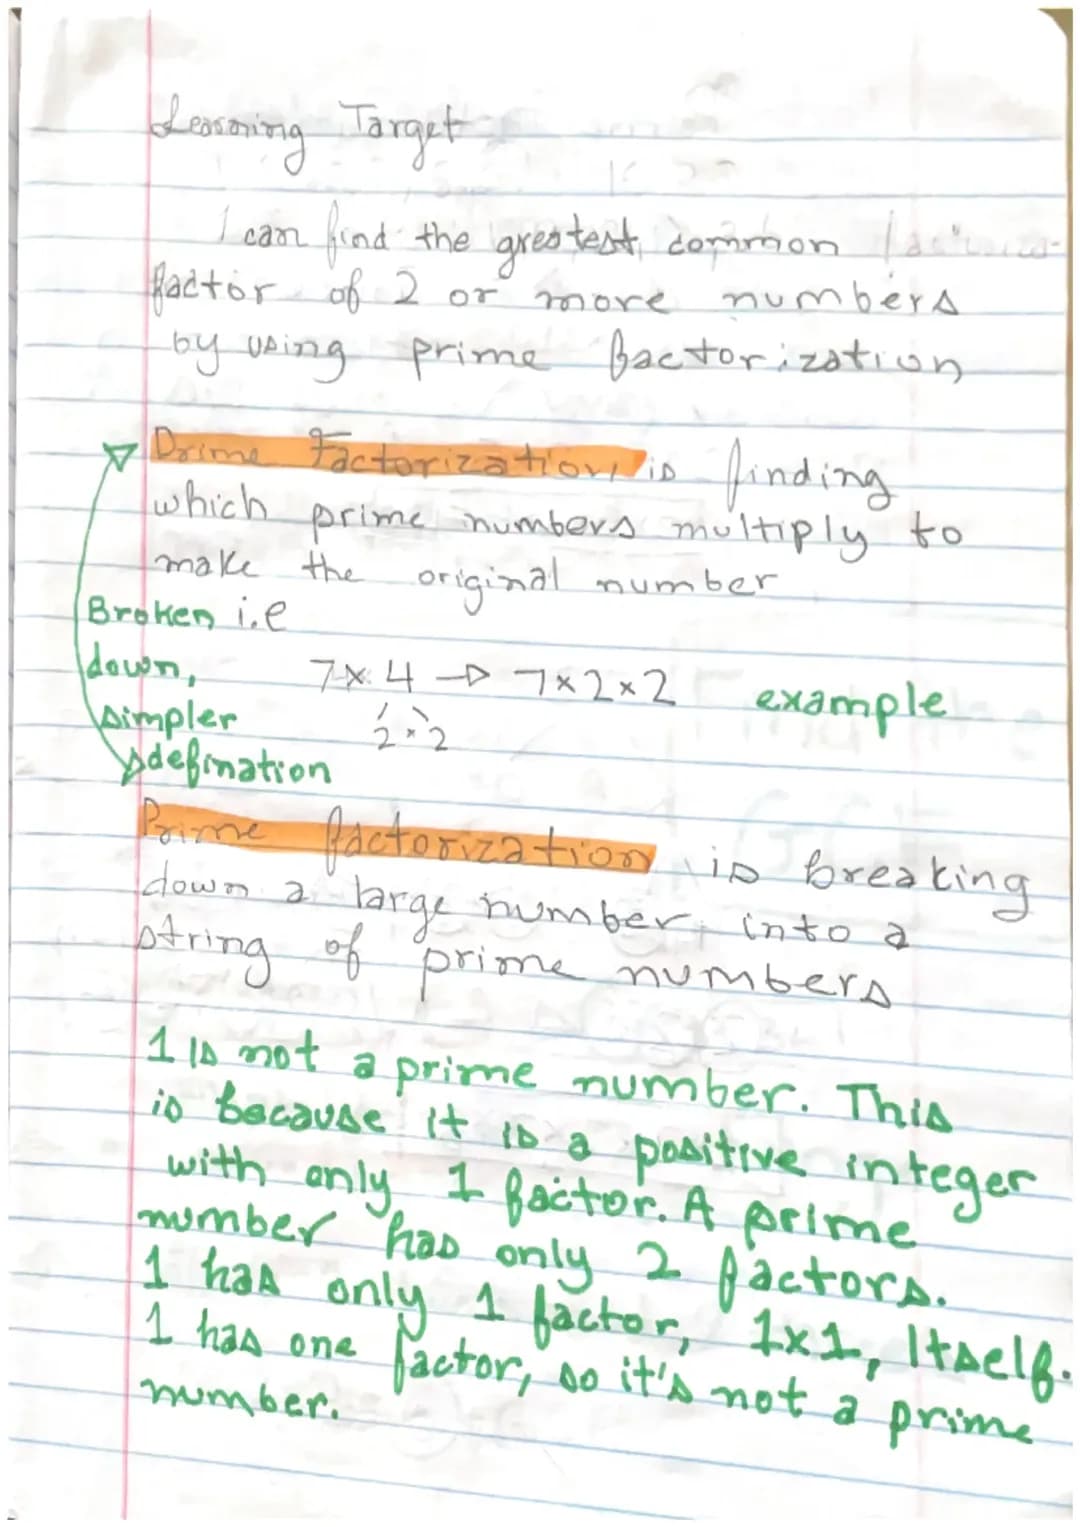 Learning Target
I can find the greatest common
factor of 2 or more numbers
by using prime factorization
Prime Factorization is finding
which prime numbers multiply to
make the original number
Broken i.e
down,
7 x 4 → 7 x 2 x 2 example
simpler
2 x 2
defination
Prime factorization is breaking
down a large number into a
string of prime numbers
1 is not a prime number. This
is because it is a positive integer
with only 1 factor. A prime
number has only 2 factors.
1 has only 1 factor, 1x1, Itself.
1 has one factor, so it's not a prime
number.